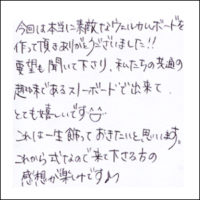 今回は本当に素敵なウェルカムボードを
作って頂きありがとうございました!!
要望も聞いて下さり、私たちの共通の
趣味であるスノーボードで出来て
とても嬉しいです
これは一生飾っておきたいと思います。
これから式なので来て下さる方の
感想が楽しみです♪